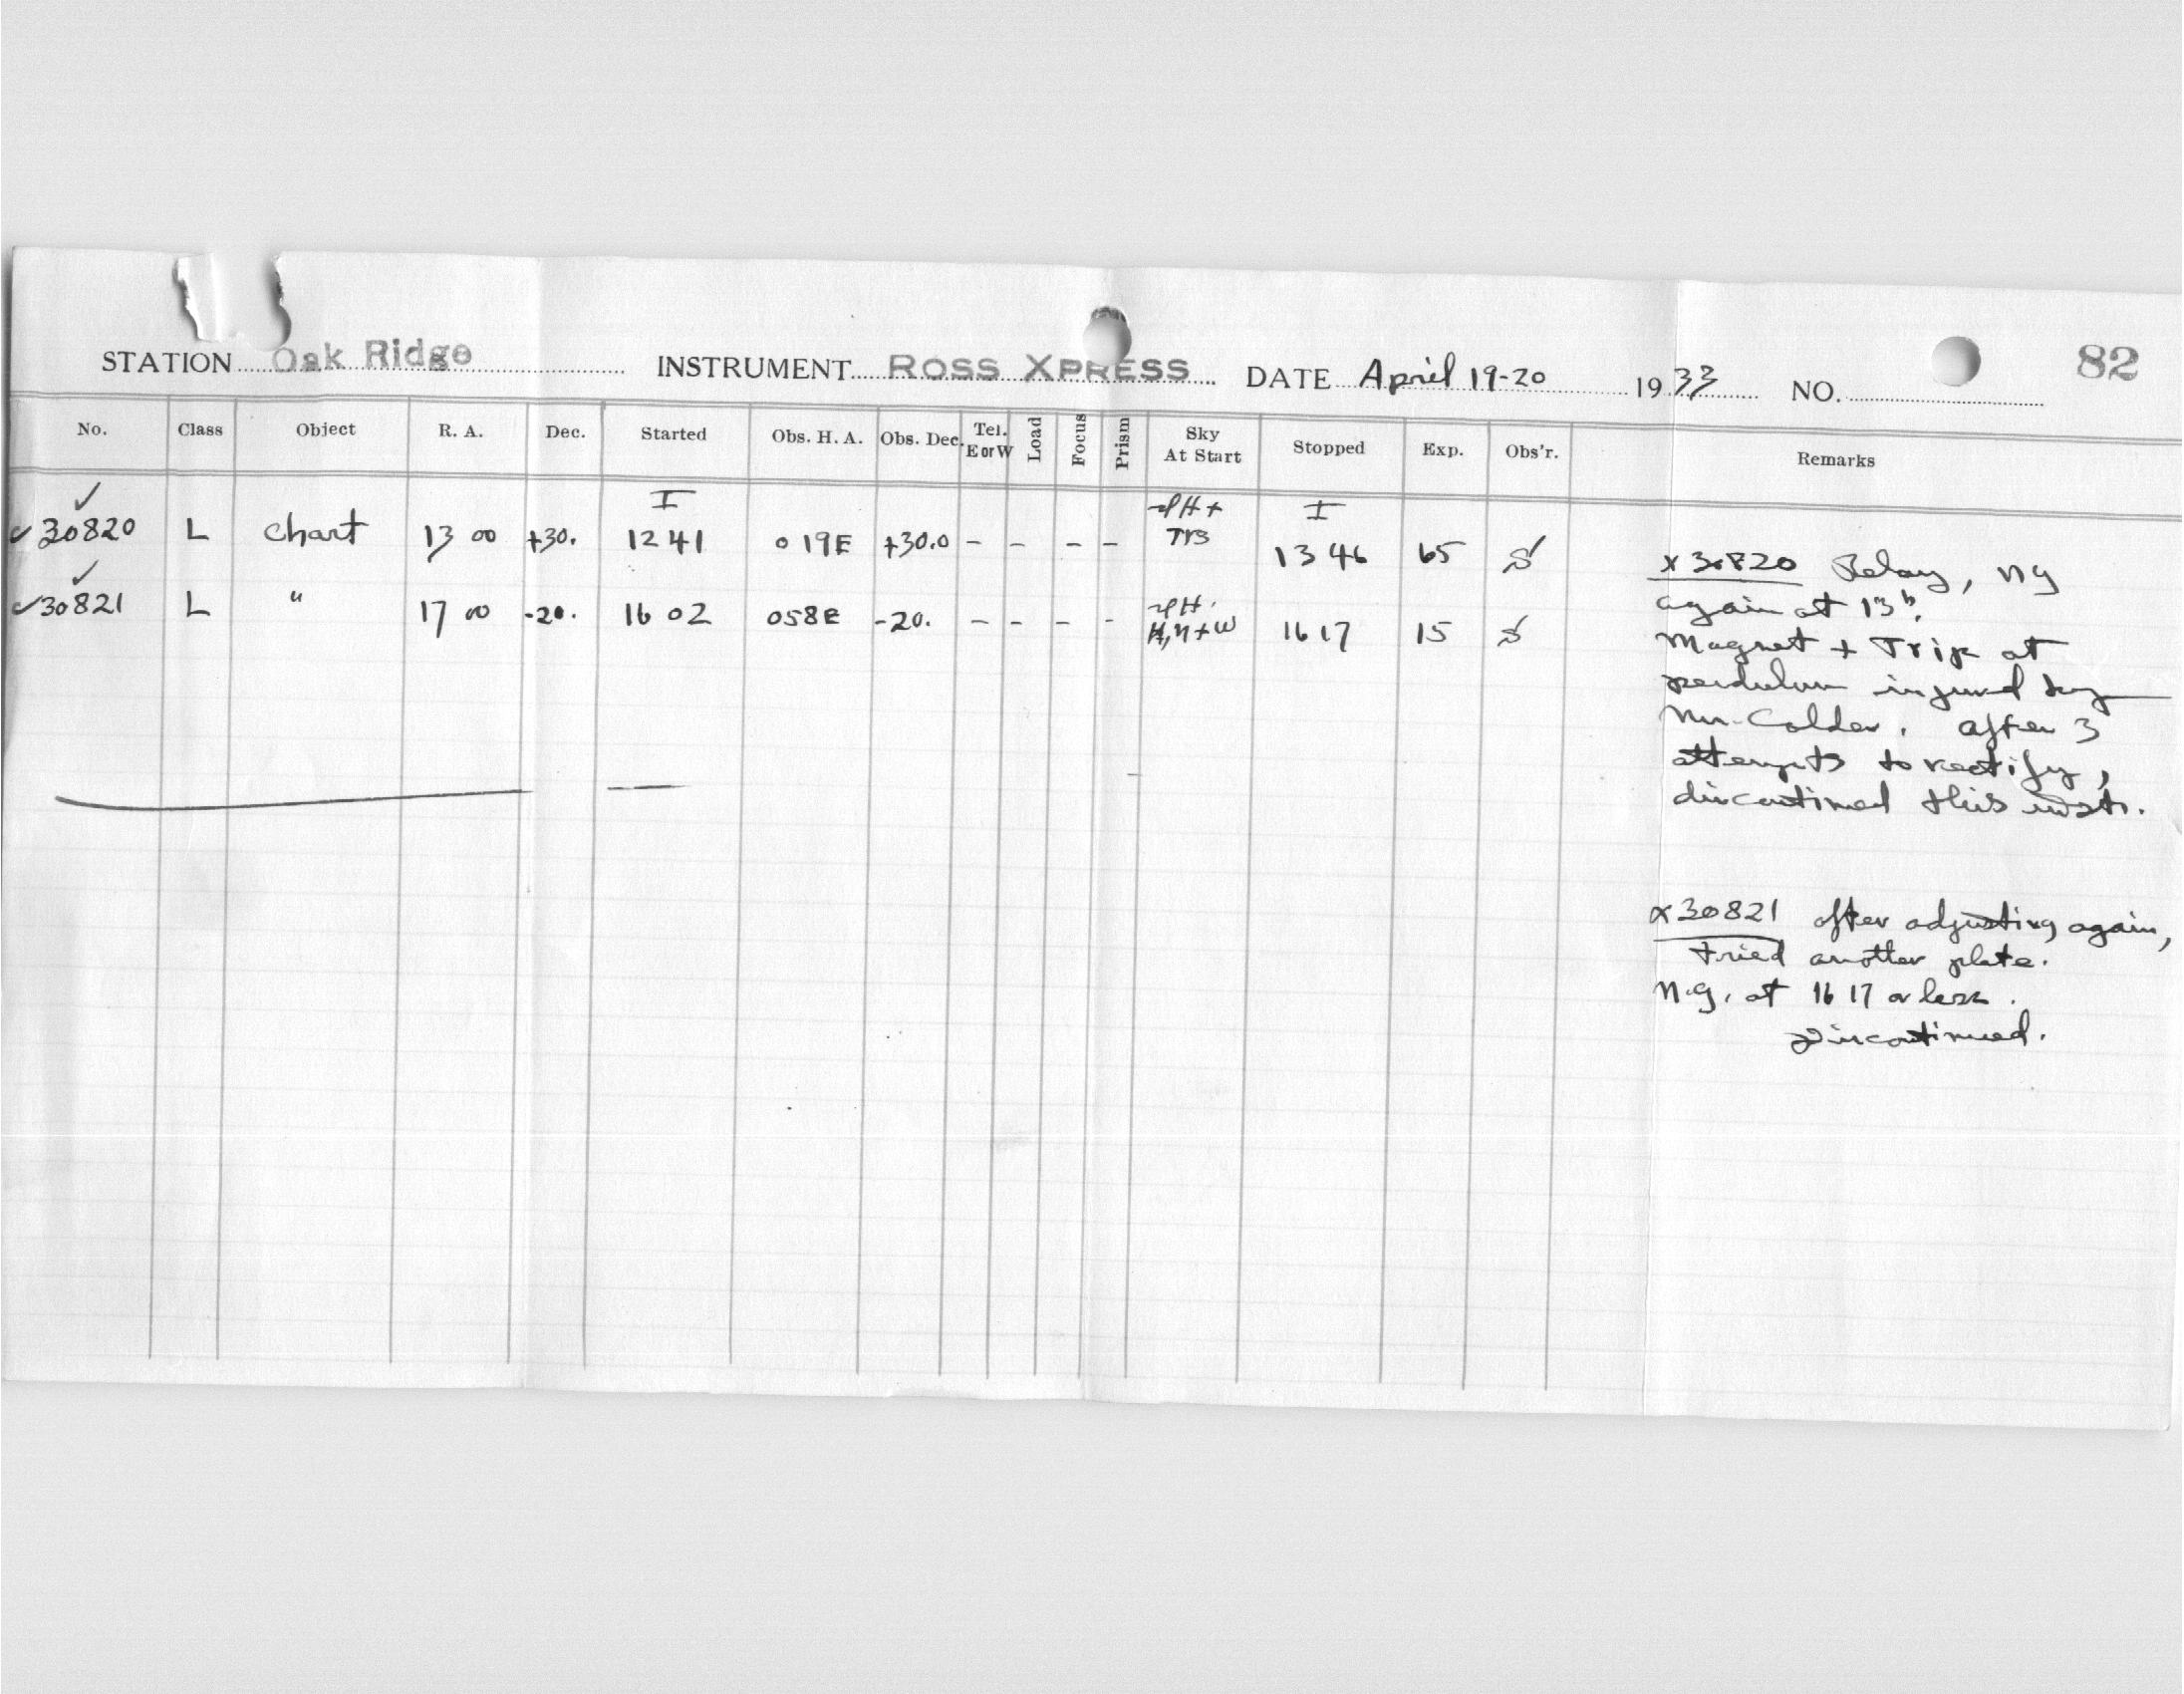 STATION Oak Ridge INSTRUMENT ROSS XPRESS DATE April 19-20 1933 NO. 82
No. Class Object R. A. Dec. Started Obs. H. A. Obs. Dec. Tel. E or W Load Focus Prism Sky At Start Stopped Exp. Obs'r. Remarks
✓ I I
✓ 30820 L Chart 13 00 +30. 12 41 0 19E +30.0 - - - - H + 13 46 65
✓
✓ 30821 L " 17 00 -20. 16 02 0 58E -20. - - - - H, + W 16 17 15
x 30820 Relay, NG
again at 13h.
Magnet + Trip at
pendulum injured by
Mr. Calder. After 3
attempts to rectify,
discontinued this instr.
x 30821 after adjusting again,
tried another plate.
N.G. at 16 17 or less.
Discontinued.